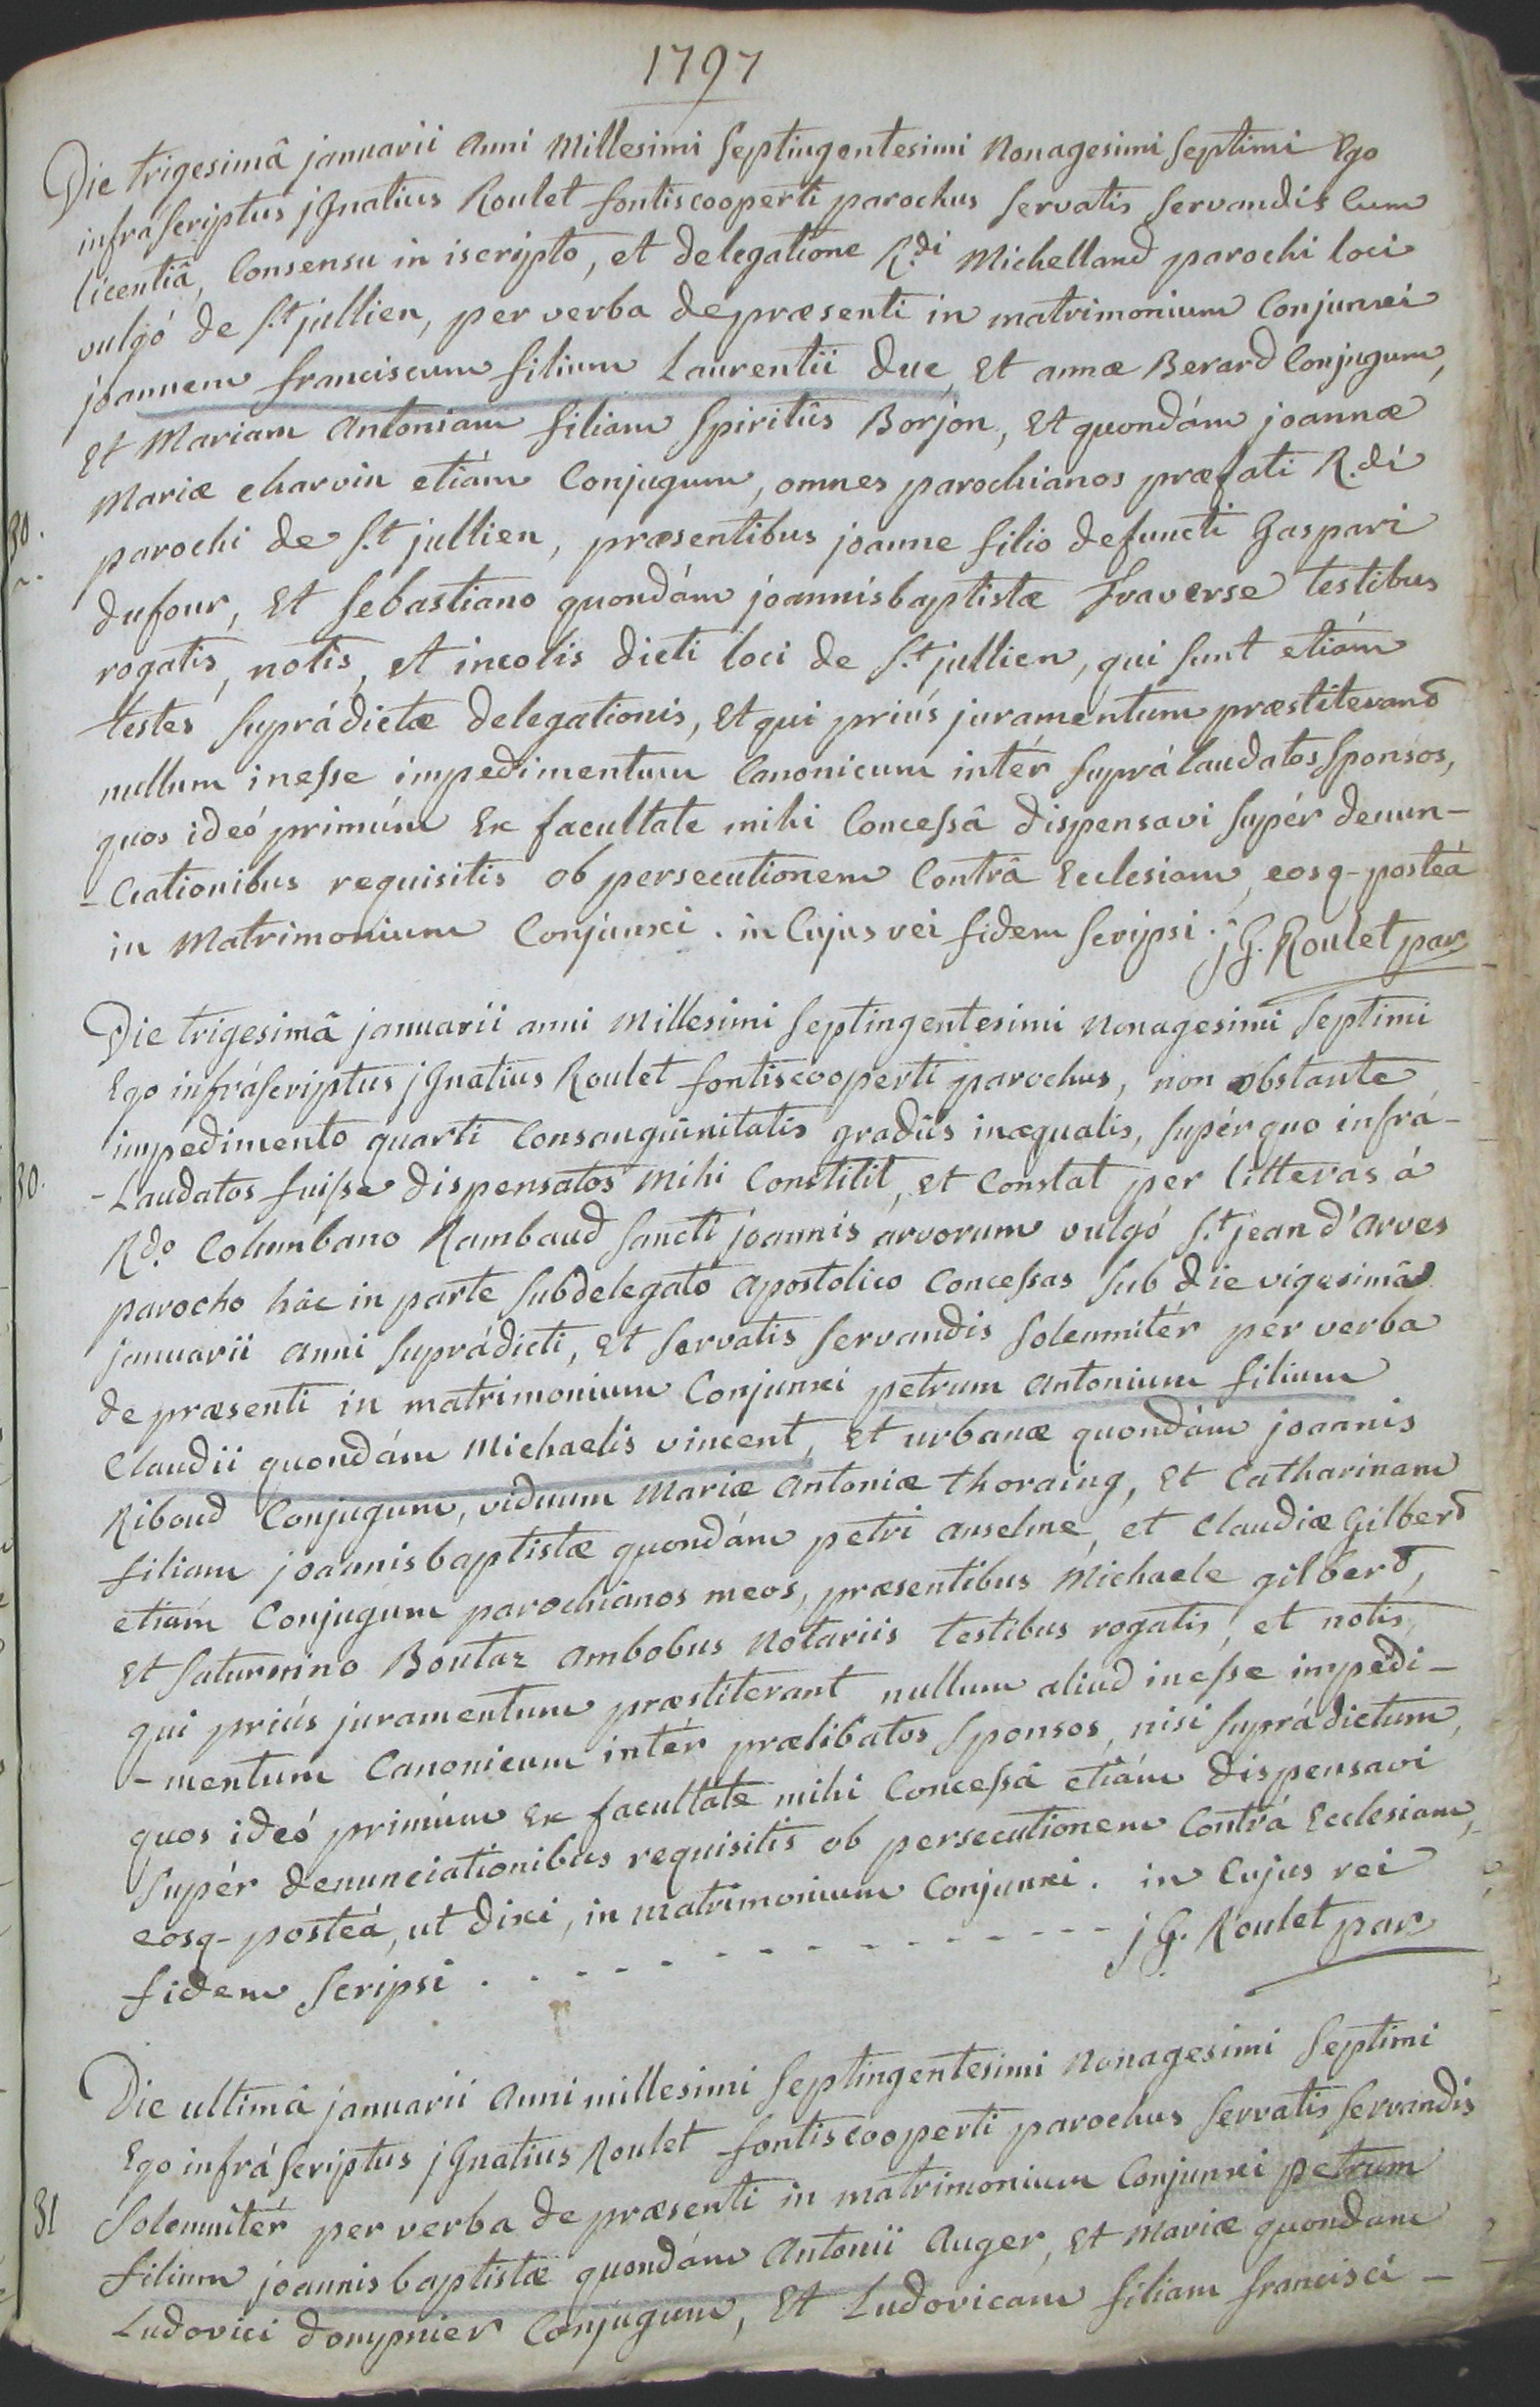 1797
Die trigesimâ januarii anni Millesimi Septingentesimi Nonagesimi Septimi Ego
infrá scriptus jGnatius Roulet fontiscooperti parochus Servatis Servandis Cum
licentiâ, Consensu in iscripto, et delegatione R.di Michelland parochi loci
vulgó de S.t jullien, per verba de præsenti in matrimonium Conjunxi
joannem franciscum filium Laurentii duc, Et annæ Berard Conjugum,
Et Mariam Antoniam filiam Spiritûs Borjon, Et quondám joannæ
Mariæ charvin etiám Conjugum, omnes parochianos præfati R.di
30.
parochi de S.t jullien, præsentibus joanne filio defuncti Gaspari
dufour, Et Sebastiano quondám joannisbaptistæ Traverse testibus
rogatis, notis, et incolis dicti loci de S.t jullien, qui sunt etiám
testes suprádictæ delegationis, Et qui priús juramentum præstiterand
nullum inesse impedimentum Canonicum intér suprálaudatos Sponsos,
quos ideó primúm Ex facultate mihi Concessâ dispensavi supér denun-
-Ciationibus requisitis ob persecutionem Contrâ Ecclesiam, eosq- posteá
in Matrimonium Conjunxi. in Cujus rei fidem Scripsi. jG. Roulet par
Die trigesimâ januarii anni Millesimi Septingentesimi Nonagesimi Septimi
Ego infráscriptus jGnatius Roulet fontiscooperti parochus, non obstante
impedimento quarti Consanguinitatis gradûs inæqualis, supér quo infrá-
30.
-Laudatos fuisse dispensatos Mihi Constitit, Et Constat per litteras á
R.do Columbano Rambaud Sancti joannis arvorum vulgó S.t jean d'arves
parocho hâc in parte Subdelegato Apostolico Concessas Sub die vigesimâ
januarii Anni suprádicti, Et Servatis Servandis Solemnitér pér verba
de præsenti in matrimonium Conjunxi petrum Antonium filium
Claudii quondám Michaelis vincent, Et urbanæ quondám joannis
Riboud Conjugum, viduum Mariæ Antoniæ thoraing, Et Catharinam
filiam joannisbaptistæ quondám petri anselme, et Claudiæ Gilberd
etiám Conjugum parochianos meos, præsentibus Michaele gilberd,
Et Saturnino Boutaz Ambobus Notariis testibus rogatis, et notis,
qui priús juramentum præstiterant nullum aliud inesse impedi-
-mentum Canonicum intér prælibatos Sponsos, nisi suprádictum,
quos ideó primúm Ex facultate mihi Concessâ etiám dispensavi
Supér denunciationibus requisitis ob persecutionem Contrá Ecclesiam,
eosq- posteá, ut dixi, in matrimonium Conjunxi. in Cujus rei
fidem Scripsi . - - - - - - - - - - - jG. Roulet par
Die ultimâ januarii Anni millesimi Septingentesimi Nonagesimi Septimi
Ego infráscriptus jGnatius Roulet fontiscooperti parochus Servatis Servandis
31
Solemnitér per verba de præsenti in matrimonium Conjunxi petrum
filium joannisbaptistæ quondám Antonii Auger, Et Mariæ quondam
Ludovici dompnier Conjugum, Et Ludovicam filiam francisci-